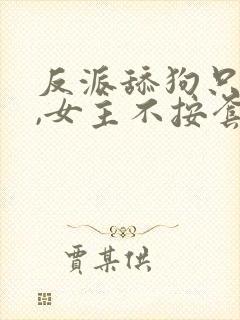 反派舔狗只
,女主不按套
贾某供